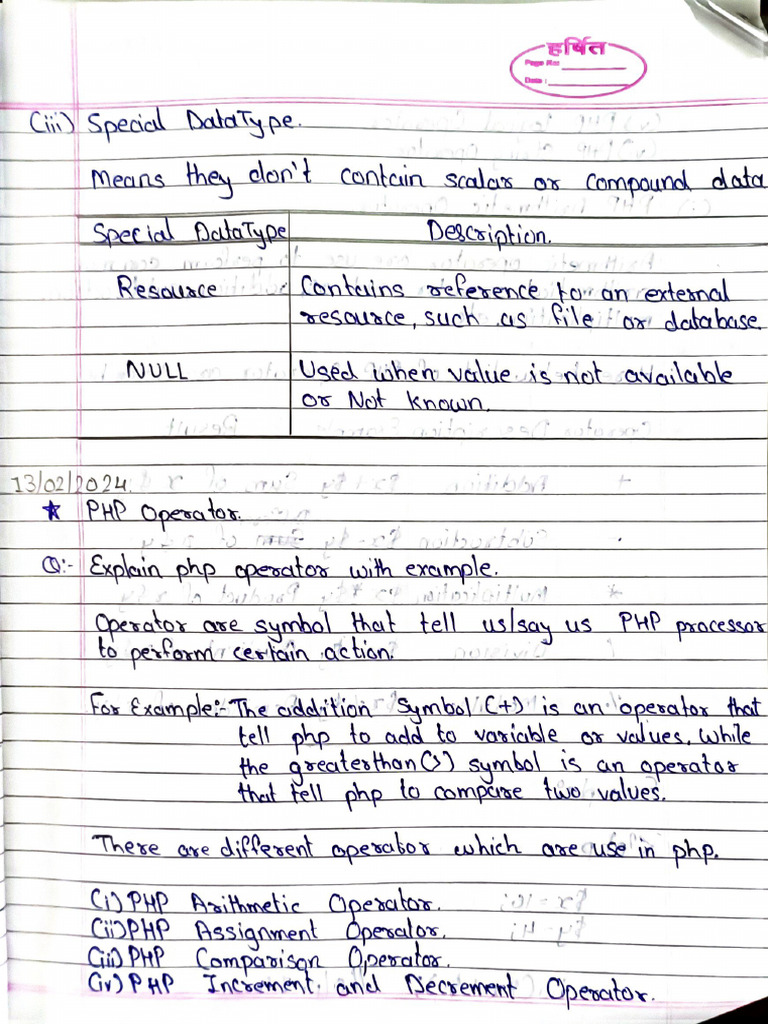 हर्षित
Page No:
Date:
(iii) Special DataType.
Means they don't contain scalar or compound data
Special DataType Description.
Resource Contains reference to an external
resource, such as file or database.
NULL Used when value is not available
or Not known.
13/02/2024.
★ PHP Operator.
Q:- Explain php operator with example.
Operator are symbol that tell us/say us PHP processor
to perform certain action.
For Example:- The addition symbol (+) is an operator that
tell php to add to variable or values, while
the greaterthan(>) symbol is an operator
that tell php to compare two values.
There are different operator which are use in php.
(i) PHP Arithmetic Operator.
(ii) PHP Assignment Operator.
(iii) PHP Comparison Operator.
(iv) PHP Increment and Decrement Operator.